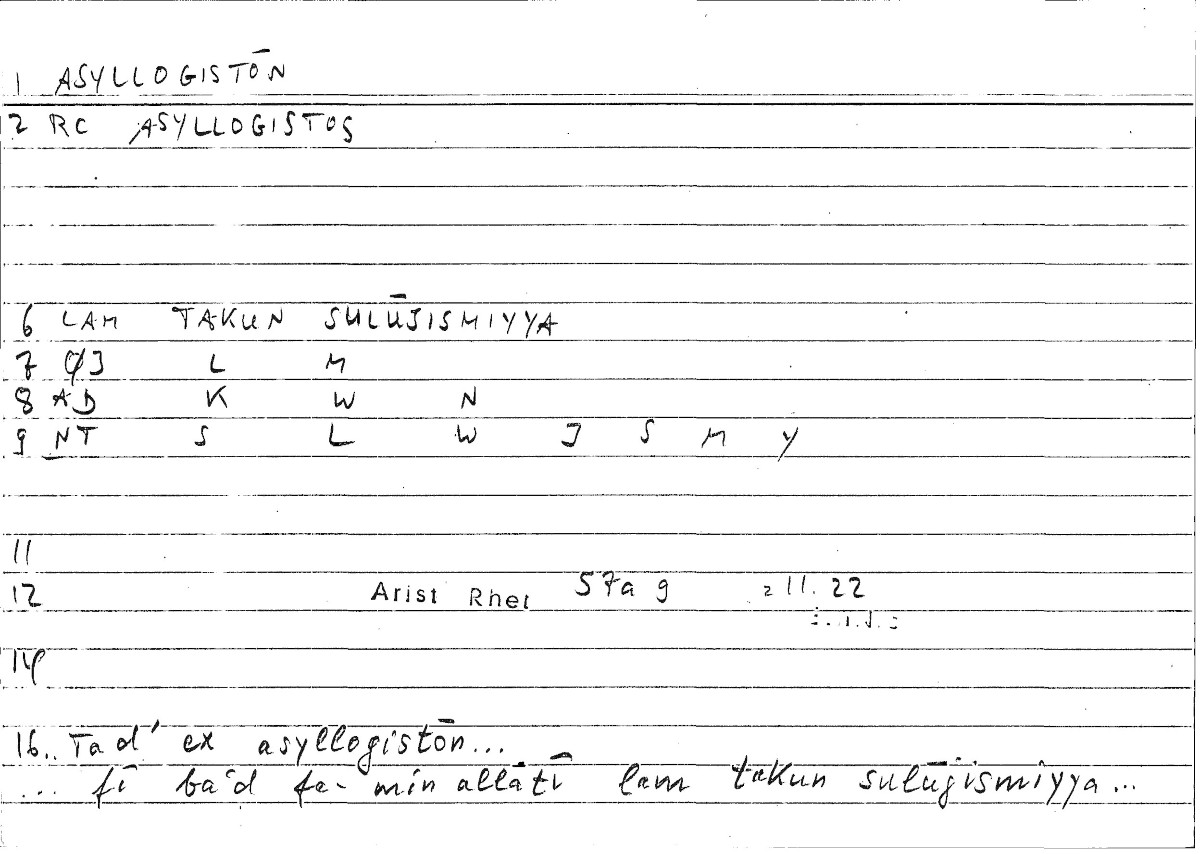 1 ASYLLOGISTŌN
2 RC ASYLLOGISTOS
6 LAM TAKUN SULŪJISMIYYA
7 L M
8 AD K W N
9 NT S L W J S M Y
11
12 Arist Rhet 57a9 11.22
14
16.. Ta d' ex asyllogistōn...
... fī ba'd fa- min allātī lam takun sulūjismiyya...